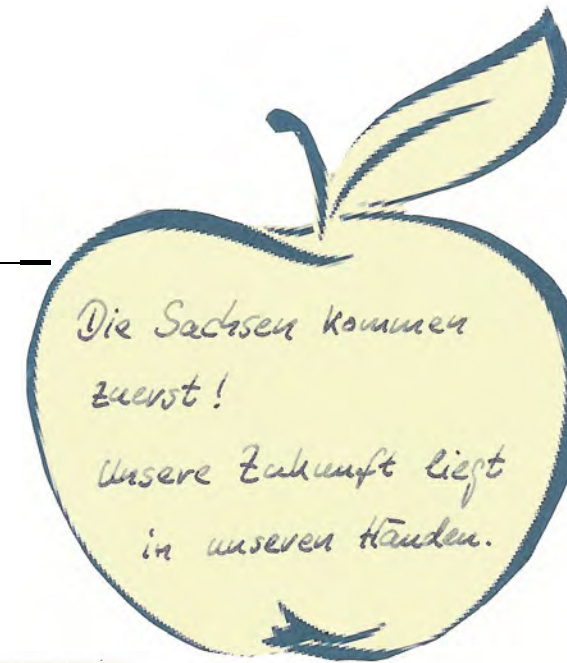 Die Sachsen kommen
zuerst!
Unsere Zukunft liegt
in unseren Händen.